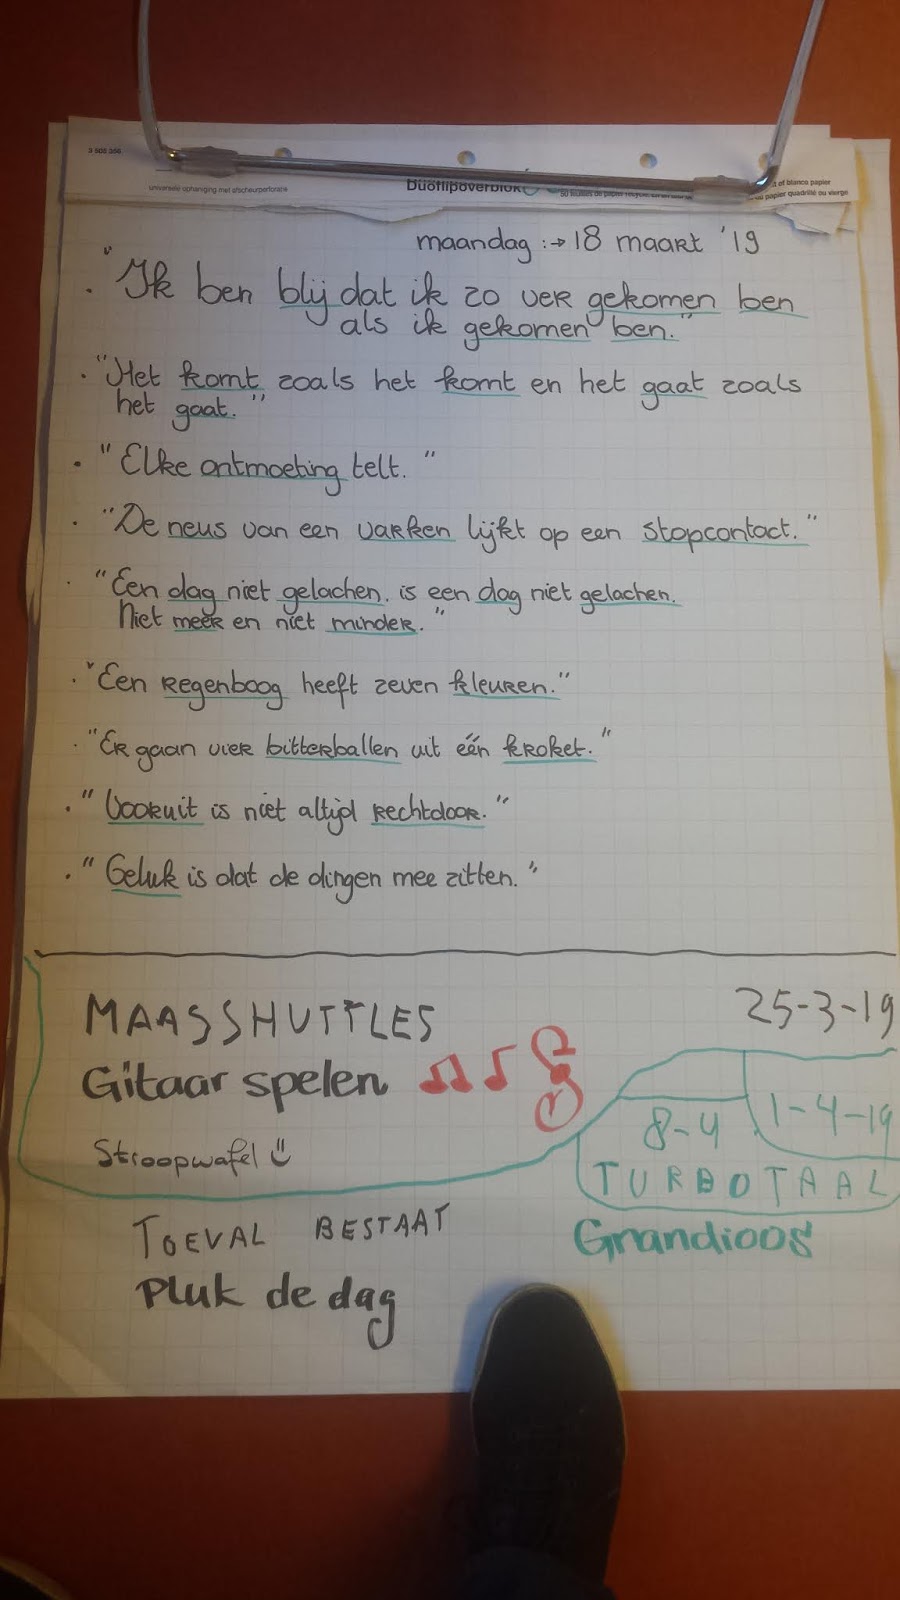 3 508 356
universele ophanging met afscheurperforatie
Duoflipoverblok
of blanco papier
papier quadrillé ou vierge
maandag :→ 18 maart '19
• "Ik ben blij dat ik zo ver gekomen ben
als ik gekomen ben."
• "Het komt zoals het komt en het gaat zoals
het gaat."
• "Elke ontmoeting telt."
• "De neus van een varken lijkt op een stopcontact."
• "Een dag niet gelachen, is een dag niet gelachen.
Niet meer en niet minder."
• "Een regenboog heeft zeven kleuren."
• "Er gaan vier bitterballen uit één kroket."
• "Vooruit is niet altijd rechtdoor."
• "Geluk is dat de dingen mee zitten."
MAASSHUTTLES
25-3-19
Gitaar spelen
8-4
1-4-19
Stroopwafel
TURBOTAAL
TOEVAL BESTAAT
Grandioos
Pluk de dag